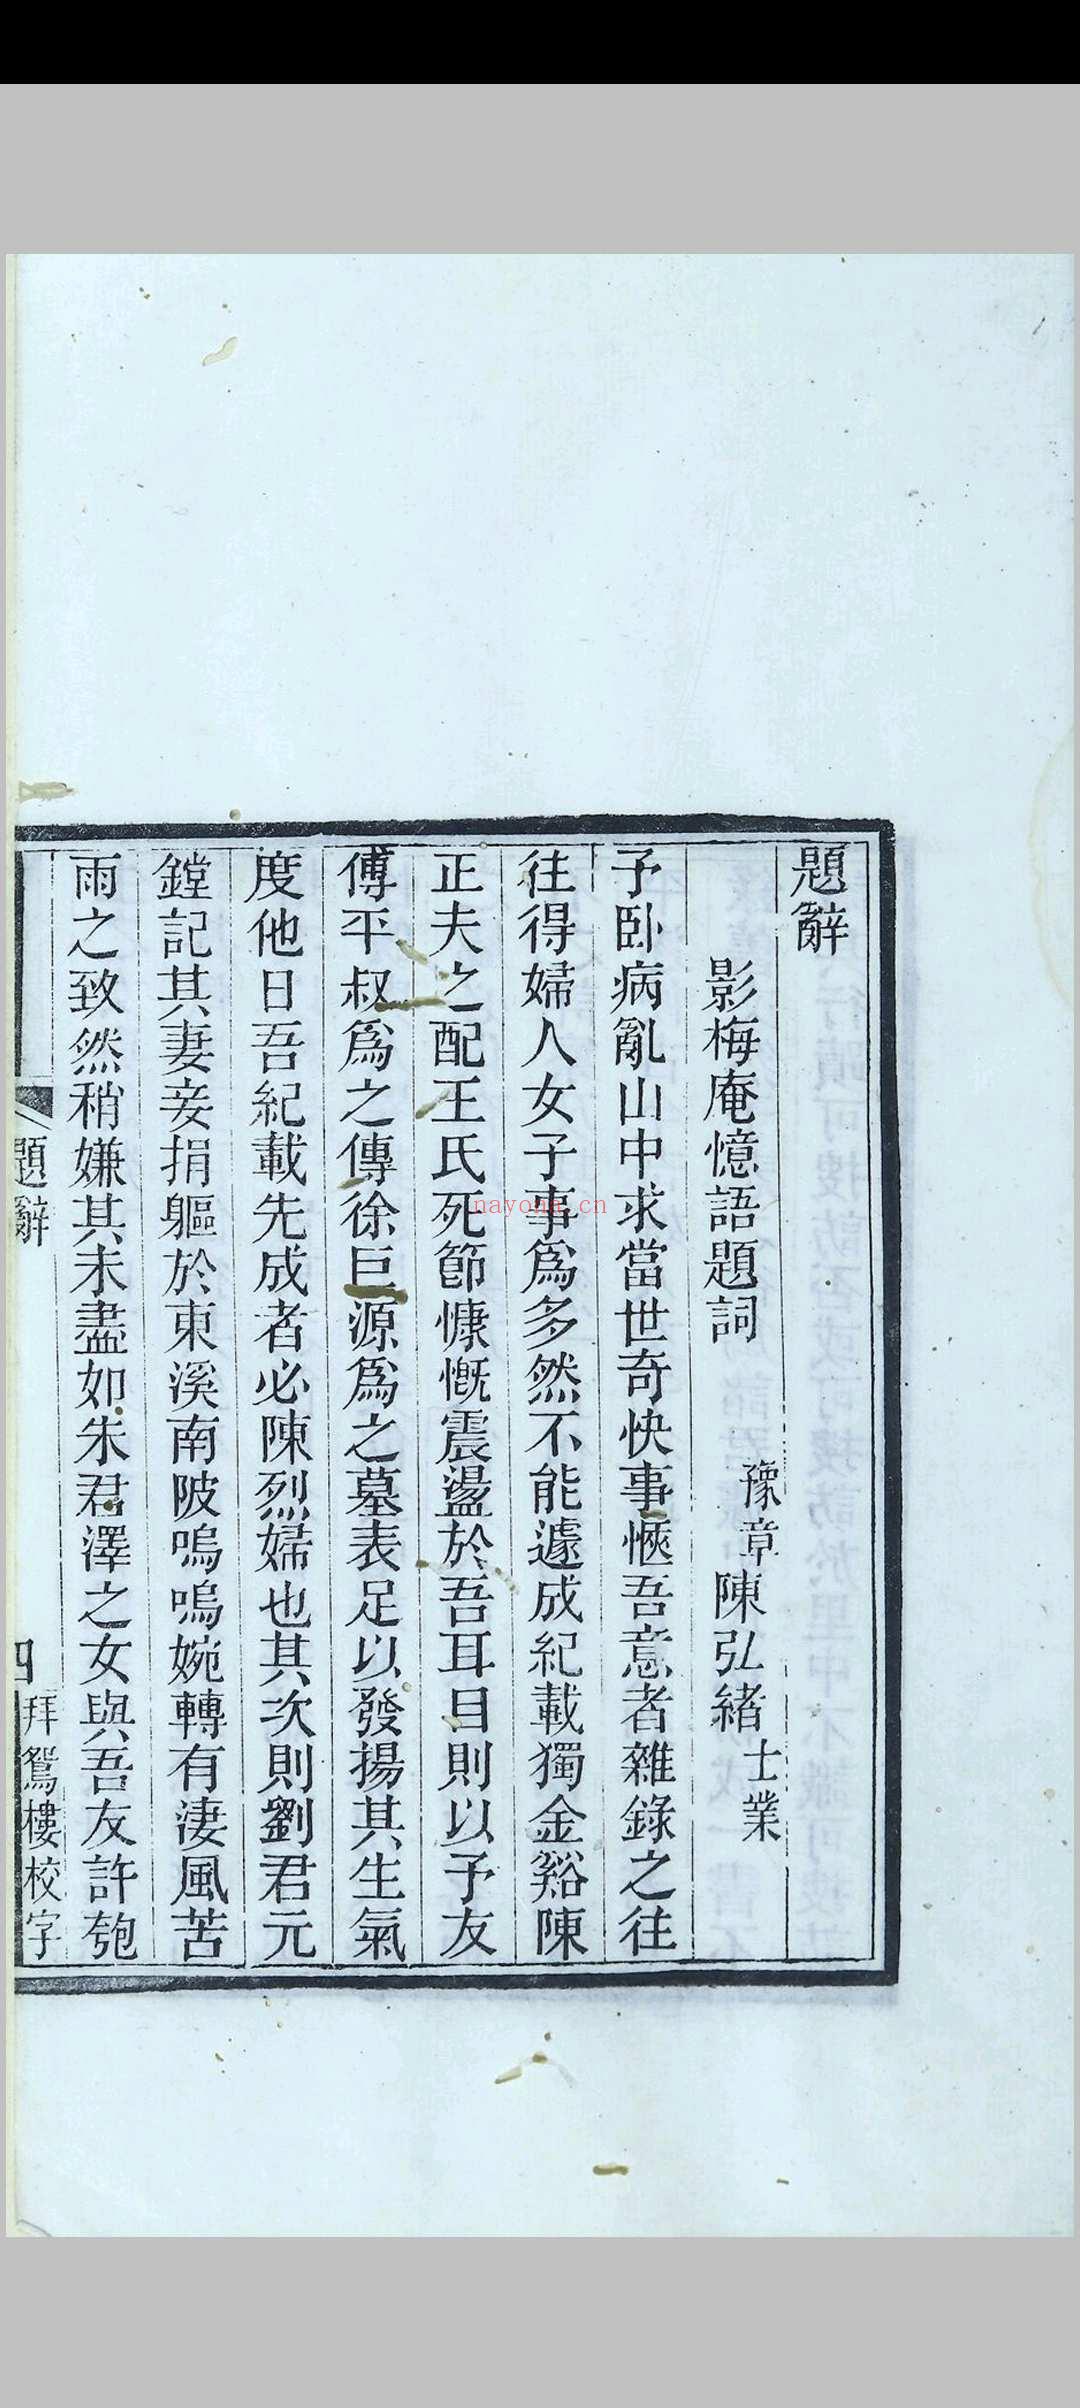 題辭
影梅庵憶語題詞
豫章陳弘緒士業
予卧病亂山中求當世奇快事愜吾意者雜錄之往
往得婦人女子事爲多然不能遽成紀載獨金谿陳
正夫之配王氏死節慷慨震盪於吾耳目則以予友
傅平叔爲之傳徐巨源爲之墓表足以發揚其生氣
度他日吾紀載先成者必陳烈婦也其次則劉君元
鏜記其妻妾捐軀於東溪南陂嗚嗚婉轉有淒風苦
雨之致然稍嫌其未盡如朱君澤之女與吾友許匏
題辭
四
拜鴛樓校字
nayona.cn